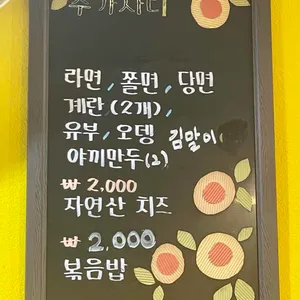 추가사리
라면, 쫄면, 당면
계란(2개),
유부, 오뎅 김말이
야끼만두(2)
₩ 2,000
자연산 치즈
₩ 2,000
볶음밥